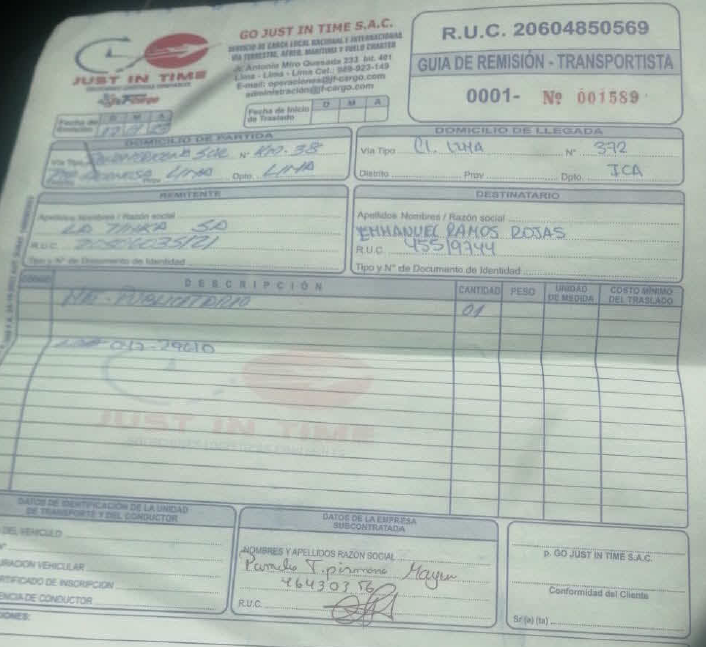 JUST IN TIME
GO JUST IN TIME S.A.C.
SERVICIO DE CARGA LOCAL NACIONAL E INTERNACIONAL
VIA TERRESTRE, AEREO, MARITIMO Y VUELO CHARTER
Jr. Antonio Miro Quesada 233 Int. 401
Lima - Lima - Lima Cel.: 989-923-143
E-mail: operaciones@jf-cargo.com
administración@jf-cargo.com
R.U.C. 20604850569
GUIA DE REMISIÓN - TRANSPORTISTA
0001- Nº 001589
Fecha de Emisión D M A
Fecha de Inicio de Traslado D M A
DOMICILIO DE PARTIDA
Vía Tipo Sur Nº Km. 38
Prov Lima Dpto. LIMA
DOMICILIO DE LLEGADA
Vía Tipo Cl. LIMA Nº 372
Distrito Prov Dpto. ICA
REMITENTE
Apellidos Nombres / Razón social
LA TINKA SA
R.U.C. 20506035121
Tipo y Nº de Documento de Identidad
DESTINATARIO
Apellidos Nombres / Razón social
EMMANUEL RAMOS ROJAS
R.U.C. 45519744
Tipo y Nº de Documento de Identidad
CODIGO DESCRIPCIÓN CANTIDAD PESO UNIDAD DE MEDIDA COSTO MÍNIMO DEL TRASLADO
PUBLICITARIO 01
012-29610
JUST IN TIME
DATOS DE IDENTIFICACIÓN DE LA UNIDAD
DE TRANSPORTE Y DEL CONDUCTOR
DEL VEHICULO
URACION VEHICULAR
RTIFICADO DE INSCRIPCION
ENCIA DE CONDUCTOR
DATOS DE LA EMPRESA
SUBCONTRATADA
NOMBRES Y APELLIDOS RAZÓN SOCIAL
Pamela
46430356
R.U.C.
p. GO JUST IN TIME S.A.C.
Conformidad del Cliente
Sr.(a) (ta)
IONES: